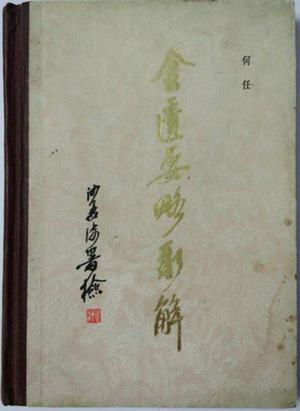 何任
金匮要略新解
沙孟海署检